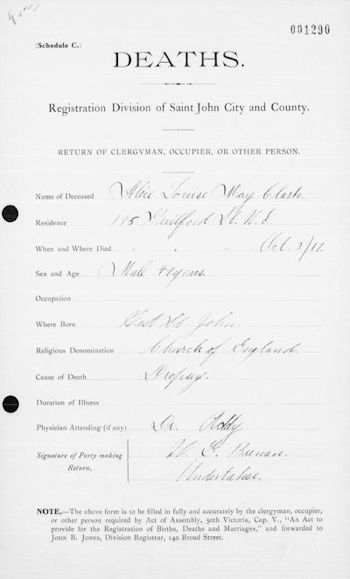 001290
(Schedule C.)
DEATHS.
Registration Division of Saint John City and County.
RETURN OF CLERGYMAN, OCCUPIER, OR OTHER PERSON.
Name of Deceased Alice Louise May Clark
Residence 195 Guilford St. W.E.
When and Where Died Oct.
Sex and Age Male 4 yrs.
Occupation
Where Born West St. John.
Religious Denomination Church of England.
Cause of Death Dropsy.
Duration of Illness
Physician Attending (if any) Dr.
Signature of Party making Return, Brenan
Undertaker.
NOTE.—The above form is to be filled in fully and accurately by the clergyman, occupier,
or other person required by Act of Assembly, 50th Victoria, Cap. V., "An Act to
provide for the Registration of Births, Deaths and Marriages," and forwarded to
JOHN B. JONES, Division Registrar, 140 Broad Street.